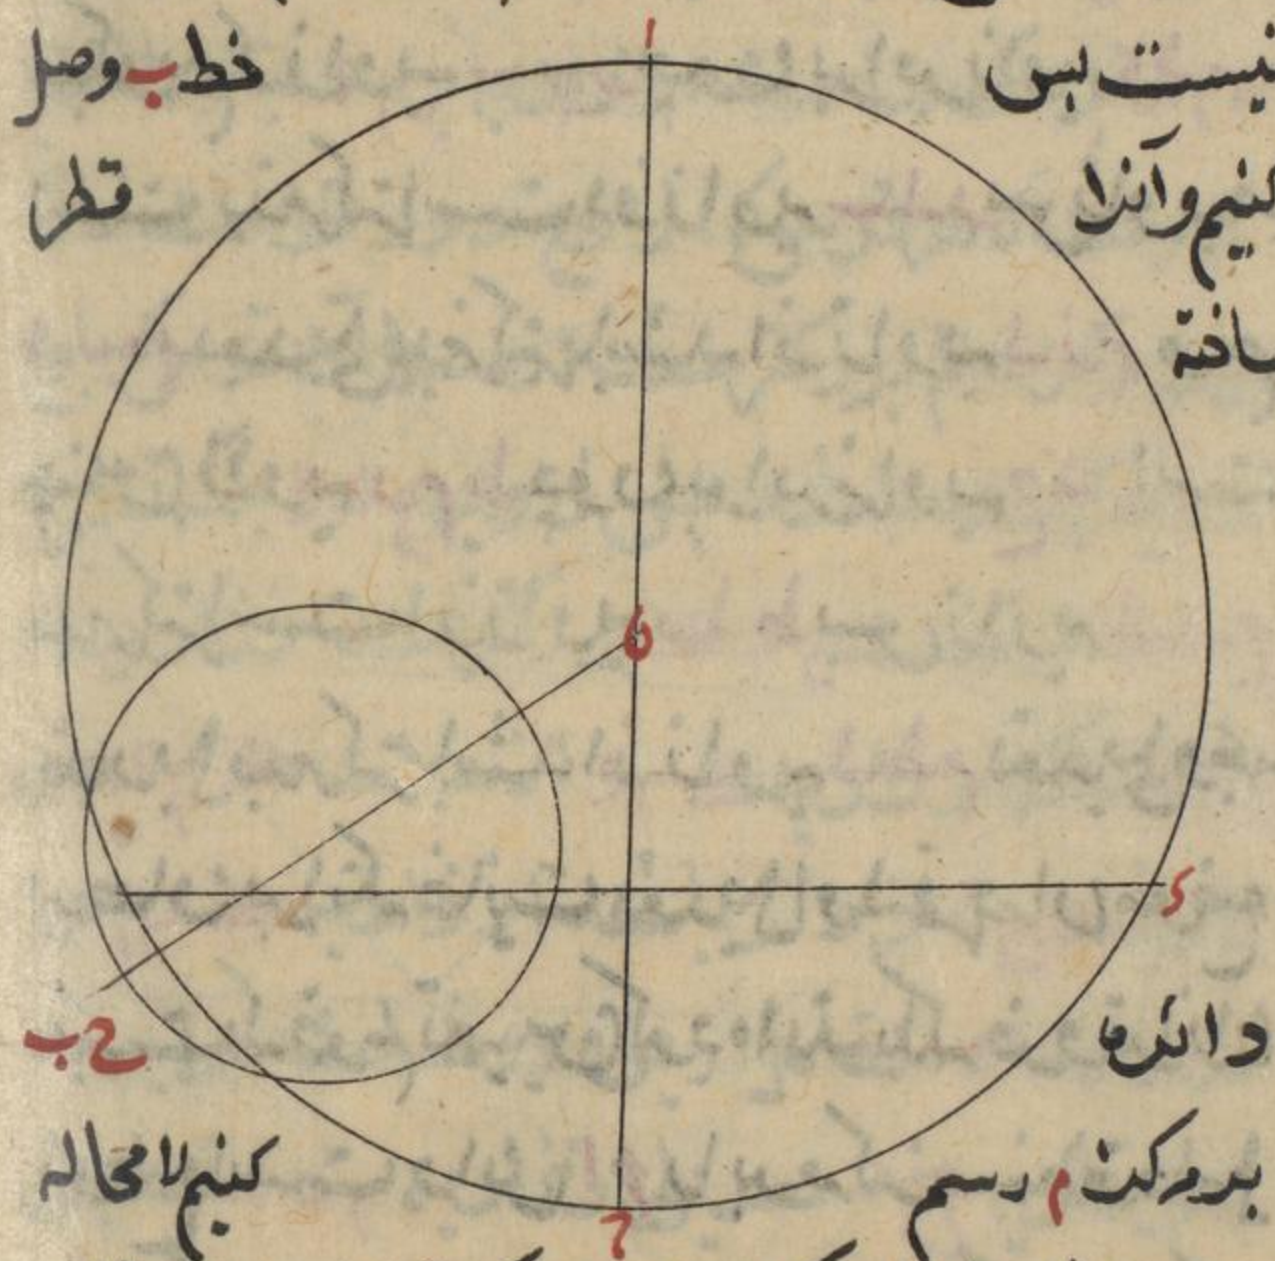 ا
نیست پس خط ب وصل
کنیم وآنرا قطر
ساخته
ه
د
دائره ح ب
بر مرکز م رسم کنیم لا محاله
ح